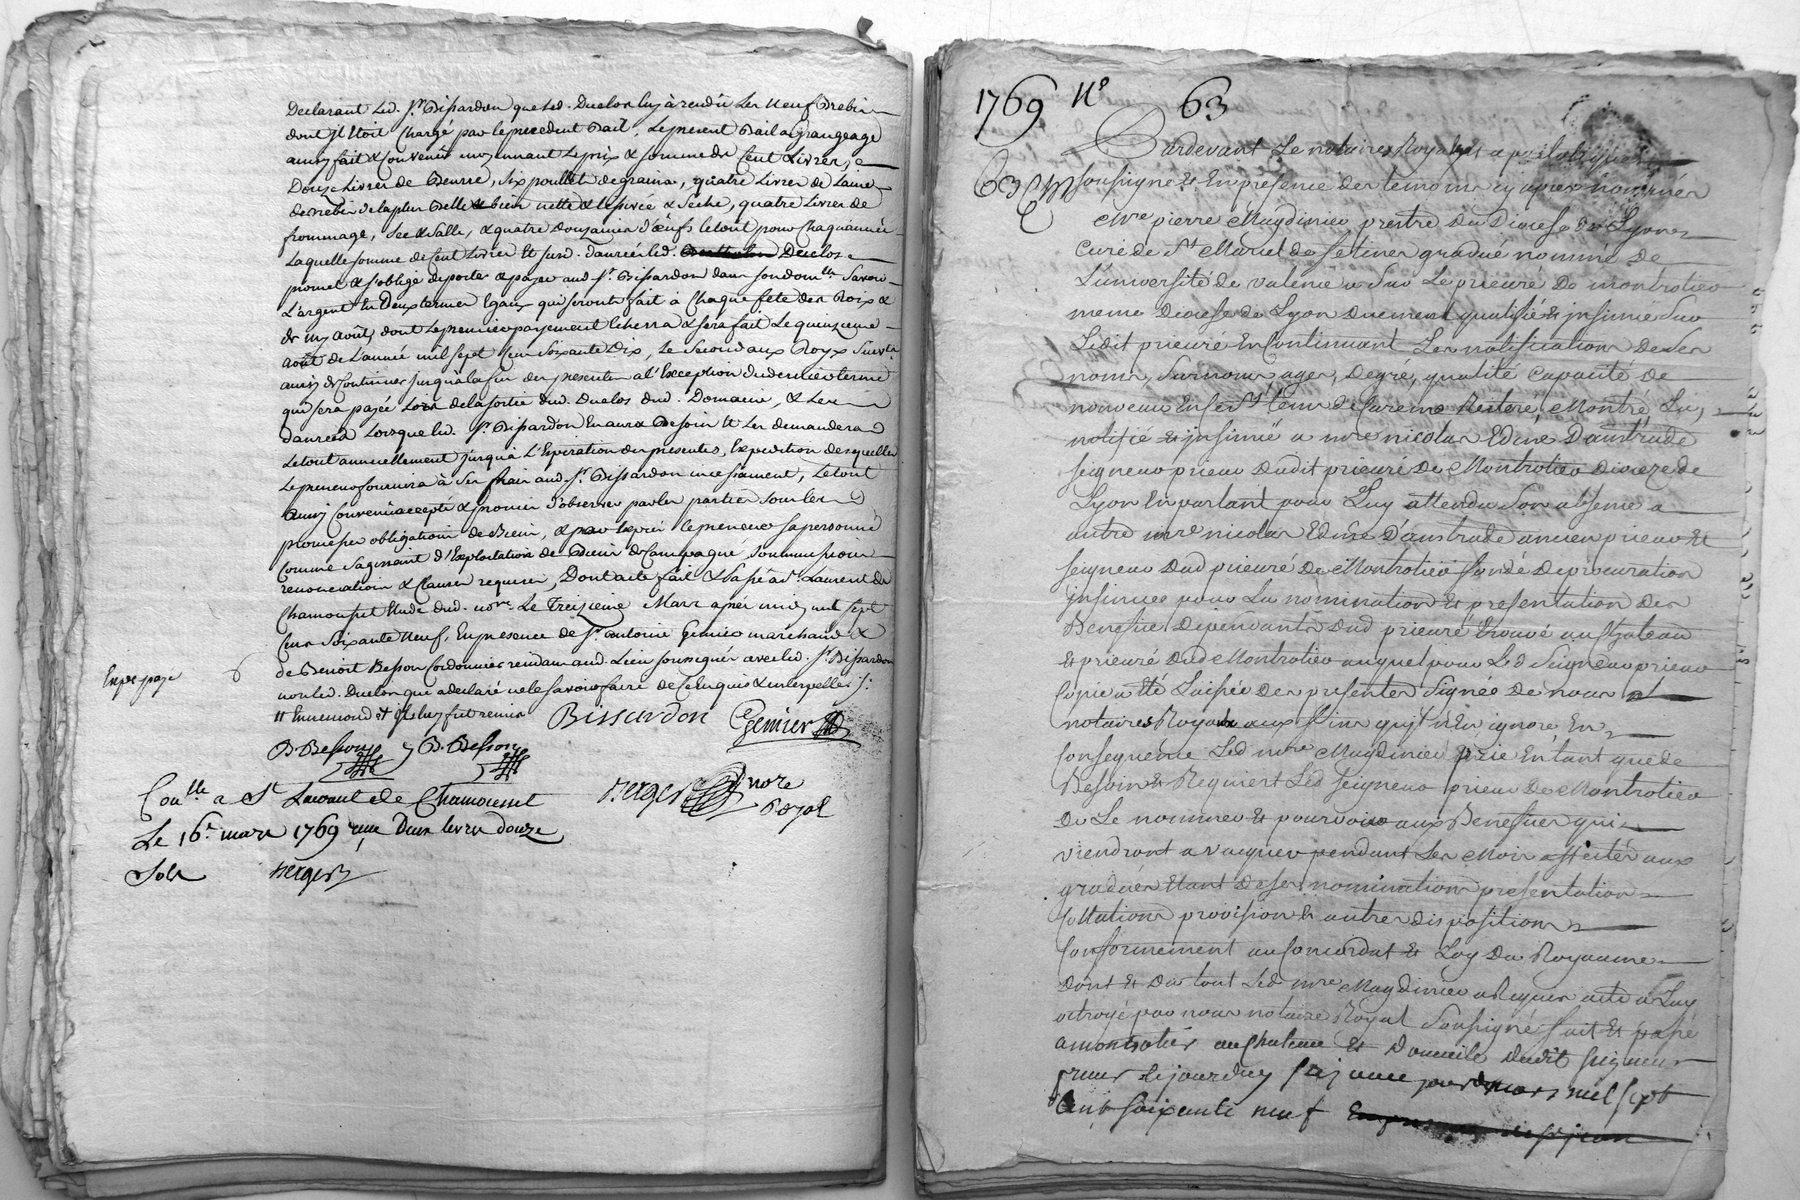 Declarant led. Sr. Bissardon que led. Duclos luy a rendu les neuf Brebis
dont il étoit chargé par le precedent Bail, le present Bail a Grangeage
ainsy fait & convenu moyennant le prix & somme de Cent Livres,
Douze Livres de Beurre, six poullets de grains, quatre Livres de Laine
de brebis de la plus Belle & bien nette & lessivée & seche, quatre Livres de
frommage, sec & salle, & quatre douzaines d'œufs le tout pour chaque année
Laquelle somme de Cent Livres et susd. danrées led. Duclos
promet & s'oblige de porter & payer aud. Sr. Bissardon dans son domlle Savoir
L'argent En Deux termes Egaux qui seront fait à Chaque fete des Rois &
de my Août, dont le premier payement Echerra & sera fait le quinzieme
Août de L'année mil sept Cent soixante Dix, Le Second aux Roys Suivts
ainsy & Continuer jusqu'à la fin des presentes a l'Exception du dernier terme
qui sera payé Lors de la sortie dud. Duclos dud. Domaine, & Les
danrées Lorsque led. Sr. Bissardon En aura Besoin & les demandera
Le tout annuellement jusqu'à L'Expiration des presentes, Expedition desquelles
Le preneur fournira à ses frais aud. Sr. Bissardon incessament, Le tout
Ainsy Convenu accepté & promis d'observer par les parties sous les
promesses obligations de Biens, & par Exprès le preneur sa personne
Comme s'agissant d'Exploitation de Biens de Campagne, soummissions
renonciations & Clauses requises, Dont acte fait & Passé à St. Laurent de
Chamousset Etude dud. nore. Le Treizieme Mars après midy mil sept
Cent Soixante neuf, En presence de Sr. antoine Genier marchand &
de Benoit Besson Cordonnier residants aud. Lieu soussignés avec led. Sr. Bissardon
non led. Duclos qui a declaré ne le savoir faire de ce Enquis & interpellé
Bissardon Genier
B. Besson B. Besson
Conlle a St Laurant de Chamousset
Le 16e. mars 1769 reçu Deux livres douze
Sols
Berger
Berger nore
royal
1769 No 63
Pardevant Le notaire Royal apostolique
Soussigné & En presence des temoins cy apres nommés
Mre. pierre Magdinier prestre du Diocese de Lyon
Curé de St
gradué nommé De
L'université de valence Sur Le prieuré De montrotier
meme Diocese de Lyon Duement qualifié & insinué Sur
Ledit prieuré En Continuant Les notifications De ses
noms, Surnoms ages, Degré, qualité Capacité De
nouveau En ce St temps de Careme Reiteré, Montré, Lu,
notifié & insinué a mre nicolas Edme
Seigneur prieur Dudit prieuré De Montrotier Dioceze de
Lyon En parlant pour Luy attendu Son absence a
autre mre nicolas Edme ancien prieur &
Seigneur Dud prieuré De Montrotier fondé De procuration
insinuée pour La nomination & presentation Des
Benefice Dependants Dud prieuré trouvé au Chateau
& prieuré Dud Montrotier auquel pour Led Seigneur prieur
Copie a été Laissée Des presentes Signée De nous
notaires Royaux aux fins qu'il n'En ignore, En
Consequence Led mre Magdinier prie En tant que de
Besoin & Requiert Led Seigneur prieur De Montrotier
De Le nommer & pourvoir aux Benefices qui
viendront a vaquer pendant Les Mois affectés aux
gradués Etant De ses nominations presentation
Collations provision & autres dispositions
Conformement au Concordat & Loy Du Royaume
Dont & Du tout Led mre Magdinier a Requis acte a Luy
octroyé par nous notaire Royal Soussigné fait & passé
a montrotier au Chateau & Domicile dudit Seigneur
prieur cejourdhuy mars mil sept
Cent soixante neuf